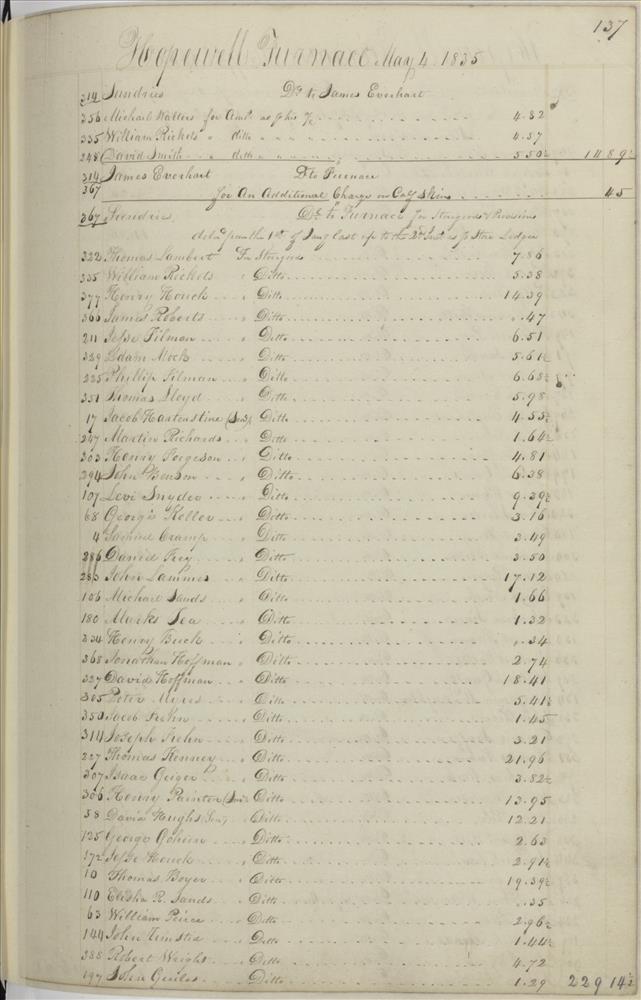 137
Hopewell Furnace May 4 1835
314 Sundries Dr to James Everhart
356 Michael Watters for Amt as p his 4.82
335 William Rickets " ditto 4.37
248 David Smith ditto 5.50½ 14 89½
314 James Everhart Dr to Furnace
367 for An Additional Charge on Calf Skins 45
367 Sundries Dr to Furnace for Storegoods & Provisions
from the 1st of Jany last up to the 2d Inst as p Store Ledger
322 Thomas Lambert For Storegoods 7.86
335 William Rickets " Ditto 5.38
377 Henry Houck " Ditto 14.39
366 James Roberts " Ditto .47
211 Jesse Tilman " Ditto 6.51
329 Adam Mock " Ditto 5.61½
225 Phillip Tilman " Ditto 6.68½
351 Thomas Lloyd " Ditto 5.98
17 Jacob Hartenstine (Senr) Ditto 4.55½
247 Martin Richards " Ditto 1.64½
303 Henry Forgeson " Ditto 4.81
294 John Benson " Ditto 6.38
107 Levi Snyder " Ditto 9.39½
68 George Keller " Ditto 3.16
4 Samuel Cramp " Ditto 3.49
286 Daniel Frey " Ditto 3.50
285 John Lammes " Ditto 17.12
106 Michael Sands " Ditto 1.66
180 Marks Lea " Ditto 1.32
334 Henry Buck " Ditto .34
368 Jonathan Hoffman " Ditto 2.74
327 David Hoffman " Ditto 18.41
305 Peter Myres " Ditto 5.41½
350 Jacob Trehn " Ditto 1.45
314 Joseph Trehn " Ditto 3.21
227 Thomas Kenney " Ditto 21.96
307 Isaac Geiger " Ditto 3.82½
306 Henry Painter (Senr) Ditto 13.95
58 David Hughs (Senr) Ditto 12.21
125 George Goheen " Ditto 2.63
172 Jesse Houck " Ditto 2.91½
10 Thomas Boyer " Ditto 19.39½
110 Elisha R. Sands " Ditto .35
63 William Peirce " Ditto 2.96½
144 John " Ditto 1.44½
388 Robert Wright " Ditto 4.72
197 John " Ditto 1.29 229 14½